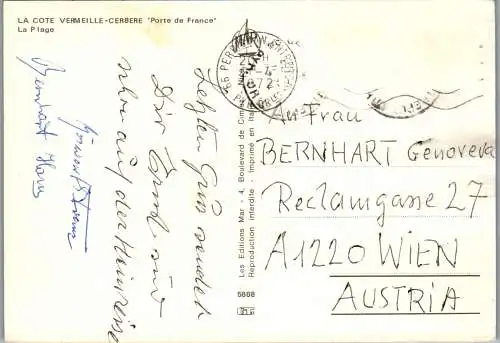 LA COTE VERMEILLE-CERBERE "Porte de France"
La Plage
Letzten Gruß sendet
Dir Ernst
schon auf der Heimreise
Bernhart Hans
Les Editions Mar - 4, Boulevard de
Reproduction interdite - Imprimé en
5868
66 PER
An Frau
BERNHART Genoveva
Reclamgasse 27
A1220 WIEN
AUSTRIA